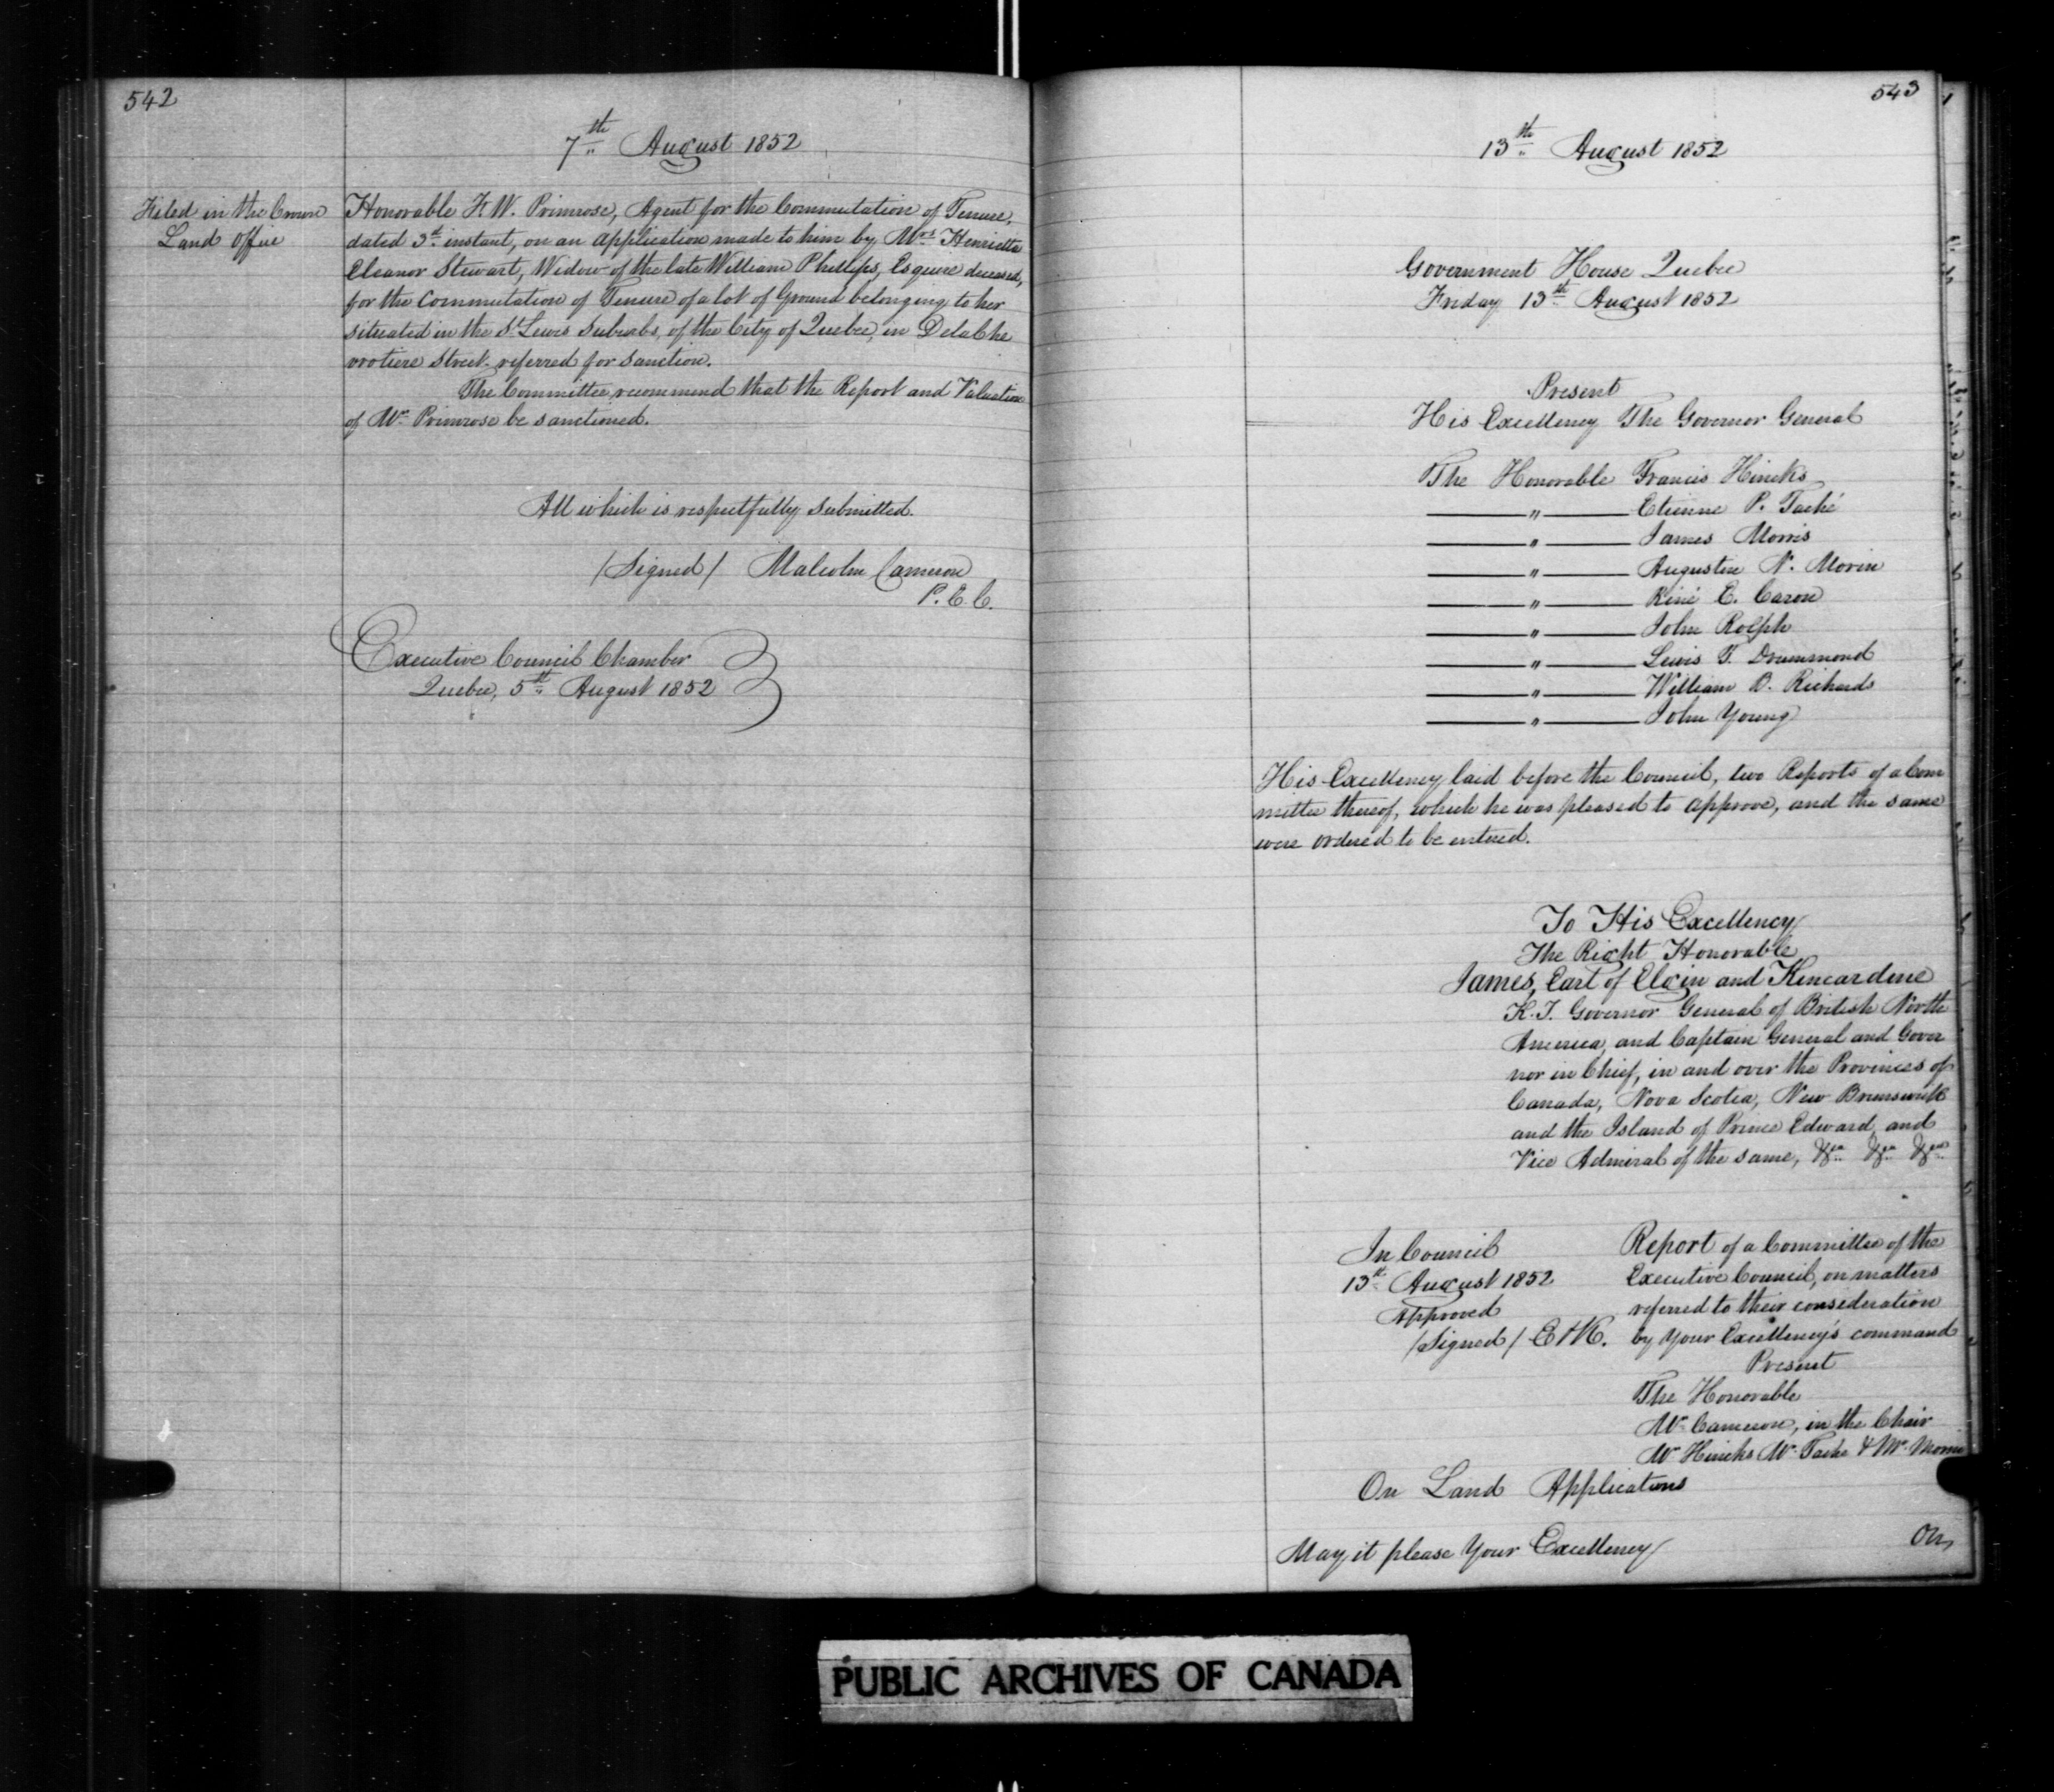 542
7th August 1852
Filed in the Crown
Land Office
Honorable F. W. Primrose, Agent for the Commutation of Tenure,
dated 3d instant, on an application made to him by Mrs Henrietta
Eleanor Stewart, Widow of the late William Phillips, Esquire deceased,
for the Commutation of Tenure of a lot of Ground belonging to her
situated in the St Lewis Suburbs, of the City of Quebec, in DelaChe
vrotiere Street. referred for sanction.
The Committee recommend that the Report and Valuation
of Mr Primrose be sanctioned.
All which is respectfully submitted.
/Signed/ Malcolm Cameron
P. C. C.
Executive Council Chamber
Quebec, 5th August 1852
543
13th August 1852
Government House Quebec
Friday 13th August 1852
Present
His Excellency The Governor General
The Honorable Francis Hincks
——— " ——— Etienne P. Taché
——— " ——— James Morris
——— " ——— Augustin N. Morin
——— " ——— Réné E. Caron
——— " ——— John Rolph
——— " ——— Lewis T. Drummond
——— " ——— William B. Richards
——— " ——— John Young
His Excellency laid before the Council, two Reports of a Com
mittee thereof, which he was pleased to approve, and the same
were ordered to be entered.
To His Excellency
The Right Honorable
James, Earl of Elgin and Kincardine
K. T. Governor General of British North
America, and Captain General and Gover
nor in Chief, in and over the Provinces of
Canada, Nova Scotia, New Brunswick
and the Island of Prince Edward, and
Vice Admiral of the same, &ca &ca &ca
In Council
13th August 1852
Approved
/Signed/ E & K.
Report of a Committee of the
Executive Council, on matters
referred to their consideration
by Your Excellency's command
Present
The Honorable
Mr Cameron, in the Chair
Mr Hincks Mr Taché & Mr Morris
On Land Applications
May it please Your Excellency
On
PUBLIC ARCHIVES OF CANADA